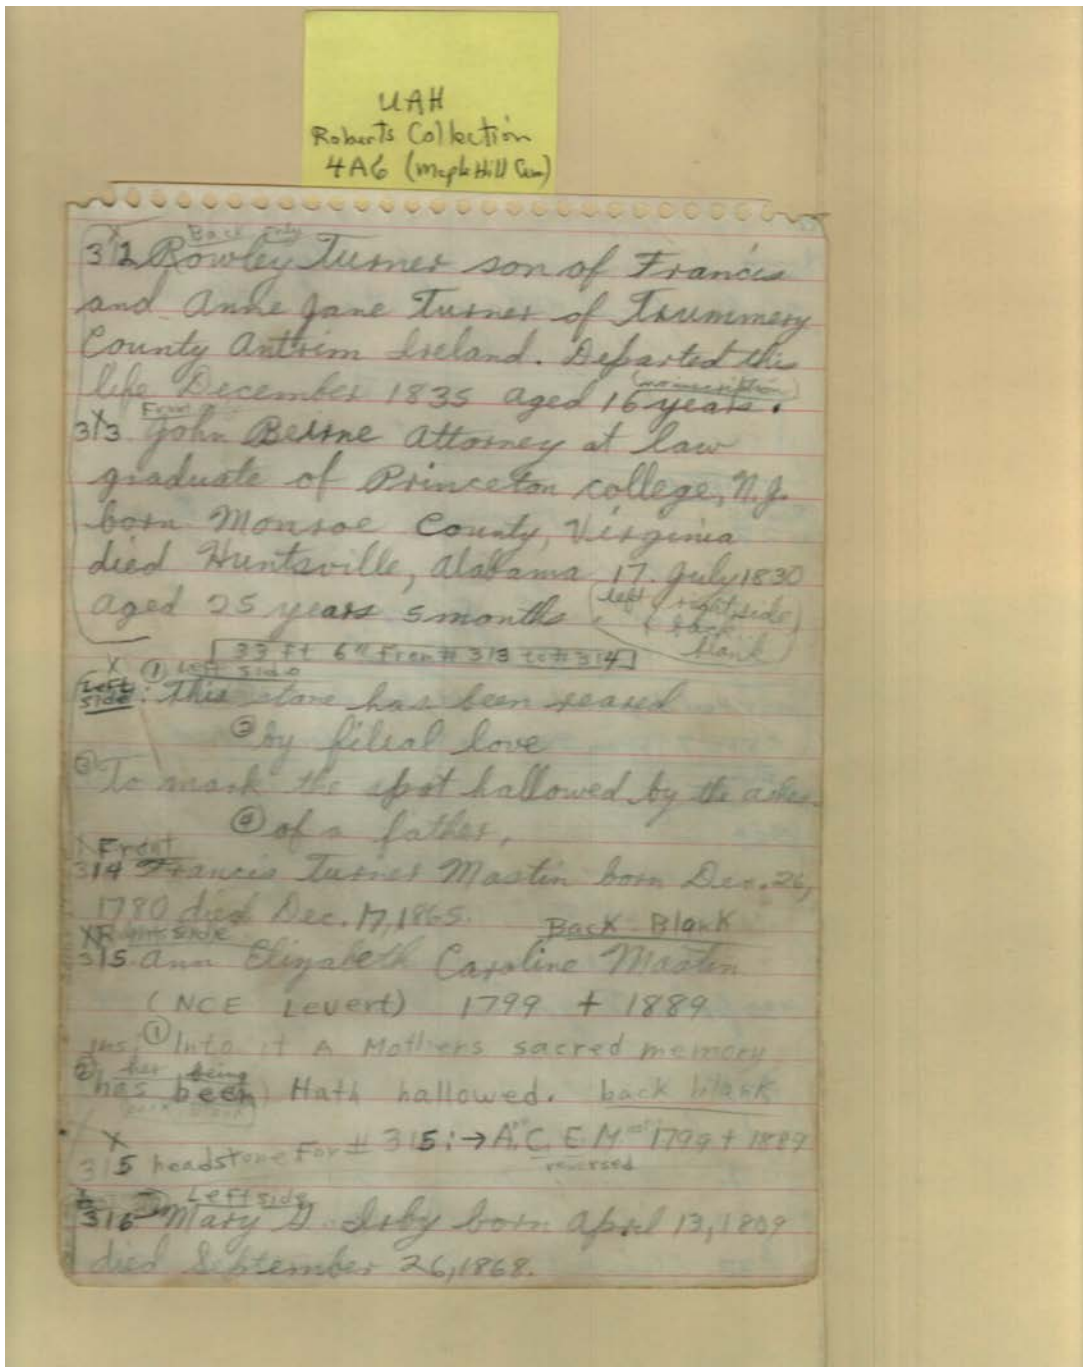 UAH
Roberts Collection
4A6 (Maple Hill Cem)
Back only
312 Rowley Turner son of Francis
and Anne Jane Turner of Trummery
County Antrim Ireland. Departed this
life December 1835 aged 16 years.
(no inscription)
Front
313 John Beirne attorney at law
graduate of Princeton college, N.J.
born Monroe County, Virginia
died Huntsville, Alabama 17. July 1830
aged 25 years 5 months
(left & right side)
& back
blank
33 ft 6" From # 313 to # 314
① Left side
Left side: This stone has been reared
② by filial love
③ To mark the spot hallowed by the ashes
④ of a father,
Front
314 Francis Turner Mastin born Dec. 26,
1780 died Dec. 17, 1865. Back Blank
Right side
315 Ann Elizabeth Caroline Mastin
(NCE Levert) 1799 + 1889
ins: ① Into it A Mothers sacred memory
② her being
has been) Hath hallowed. back blank
X
315 headstone For # 315: → A. C. E. M 1799 + 1889
reversed
Left side
316 Mary G. Irby born April 13, 1809
died September 26, 1868.